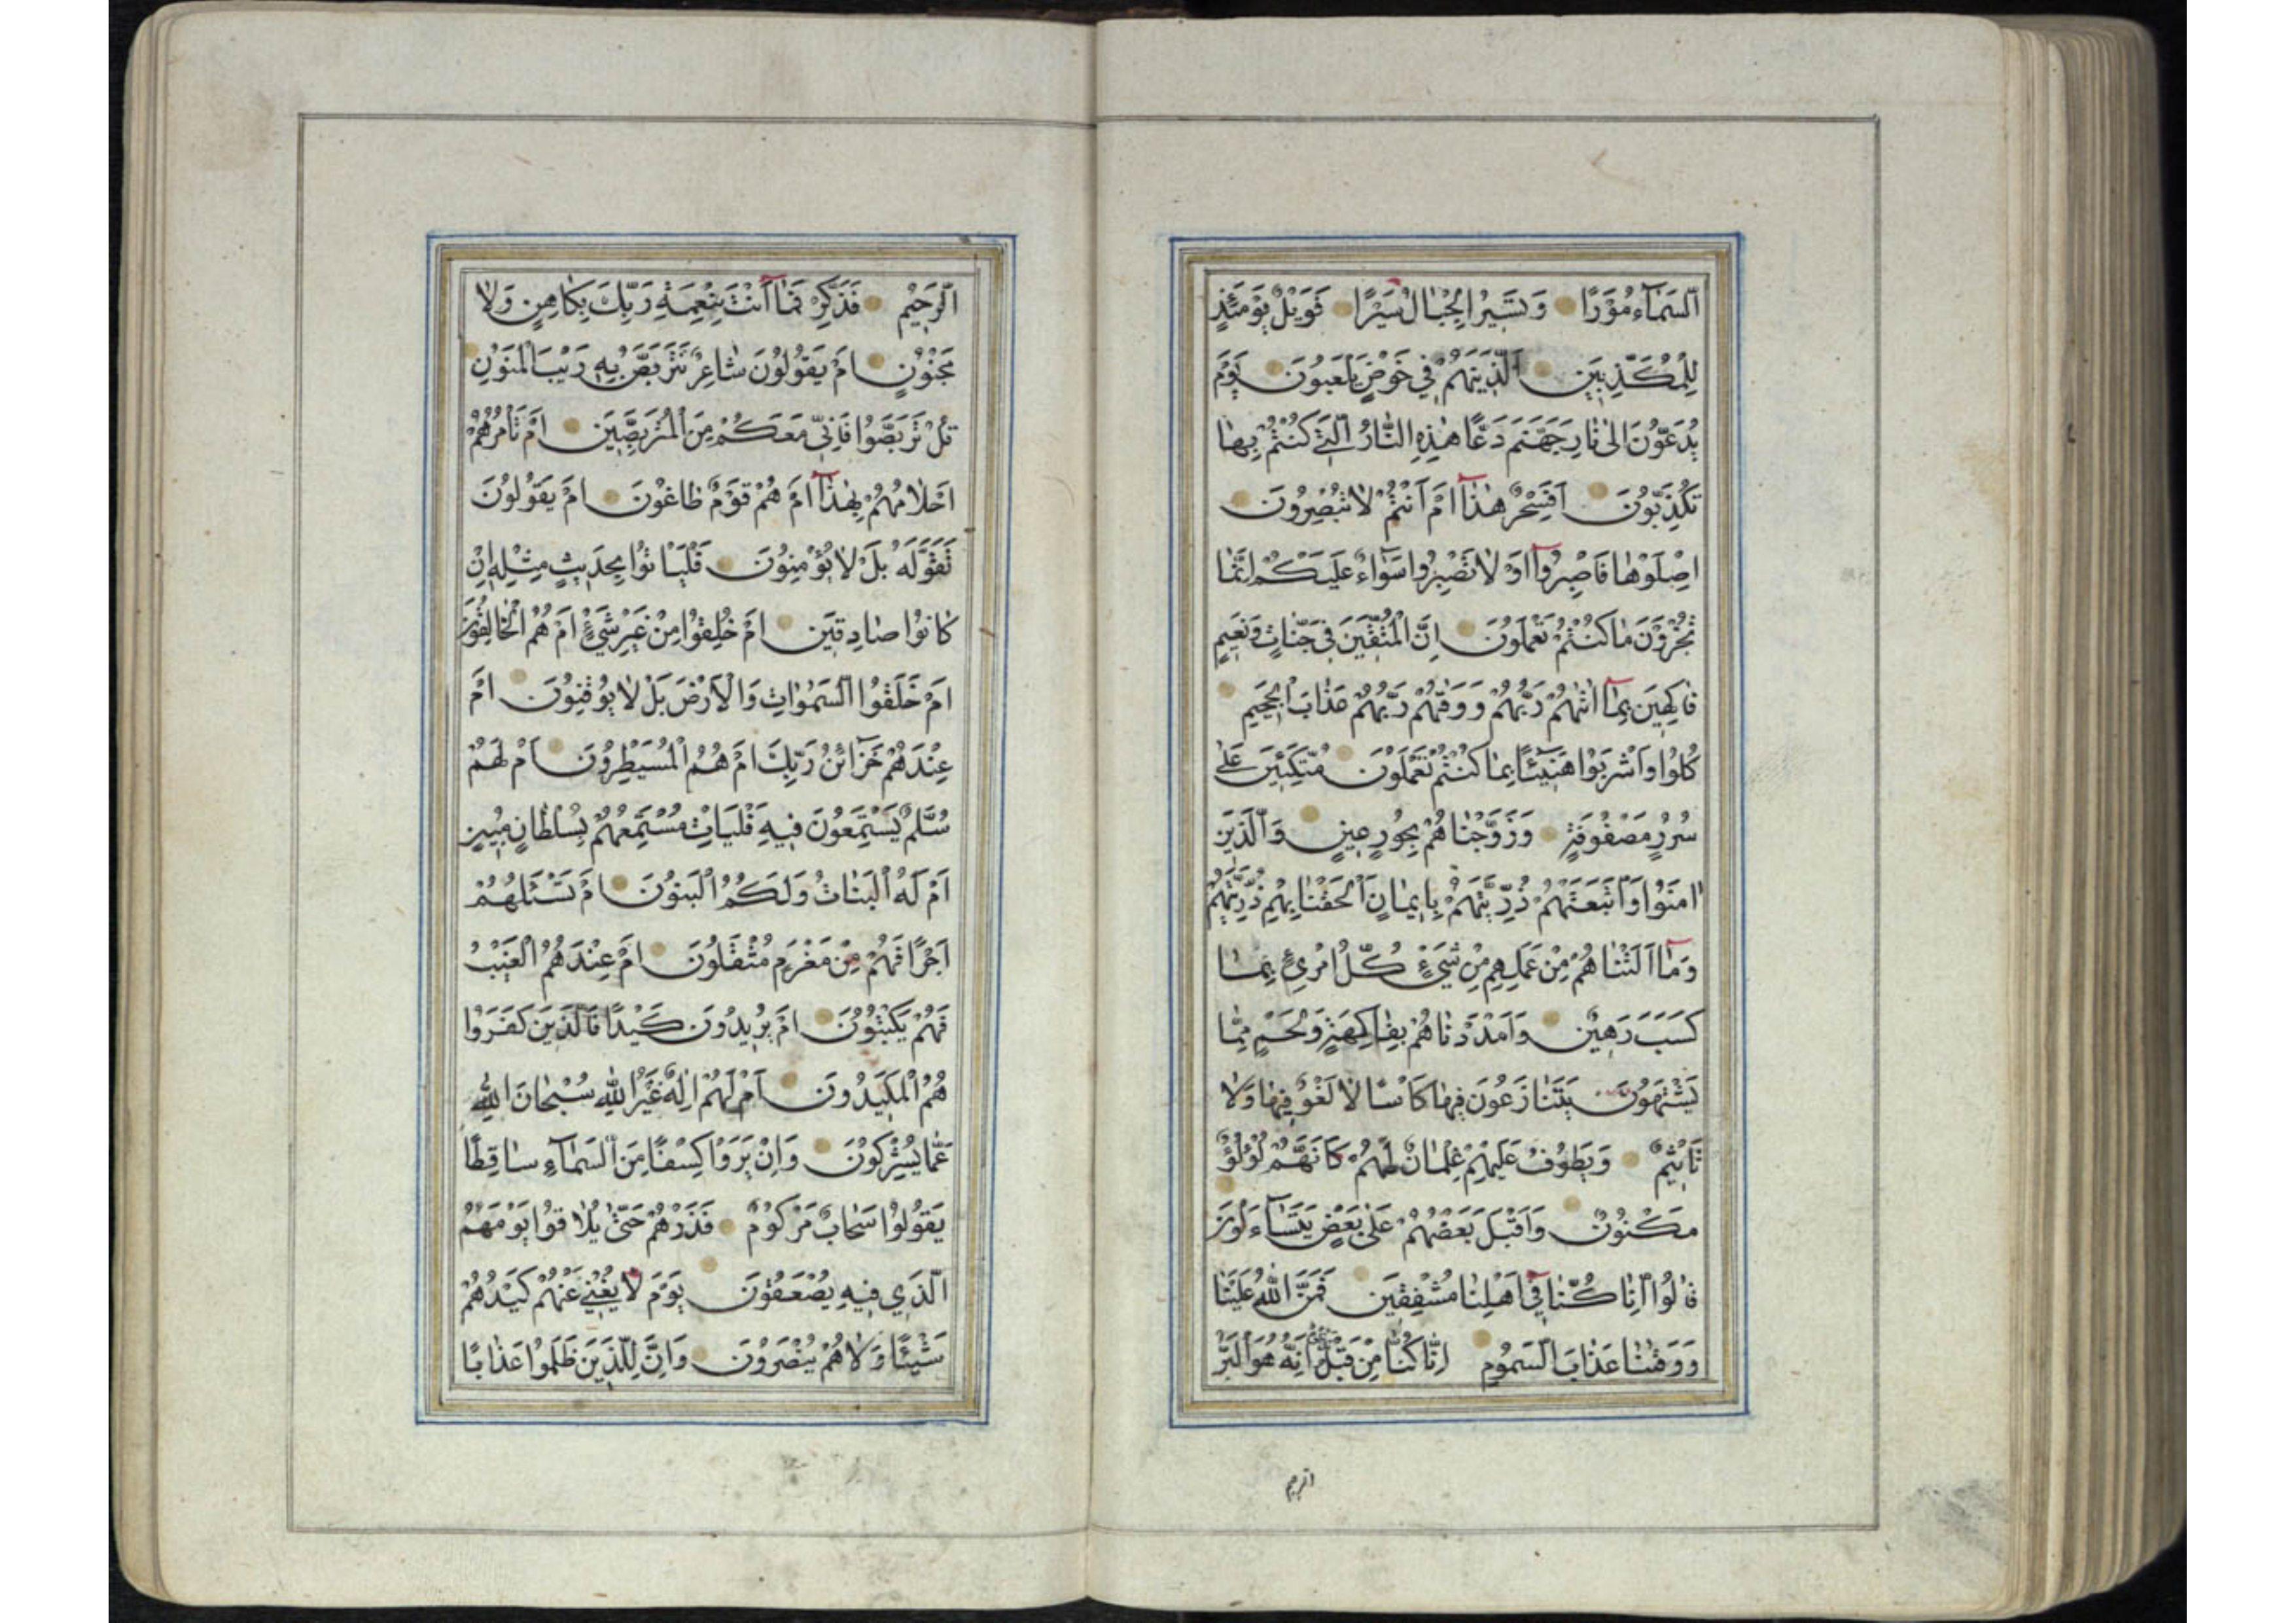 اَلسَّمَاءُ مَوْرًا وَتَسِيرُ الْجِبَالُ سَيْرًا فَوَيْلٌ يَوْمَئِذٍ
لِلْمُكَذِّبِينَ اَلَّذِينَ هُمْ فِي خَوْضٍ يَلْعَبُونَ يَوْمَ
يُدَعُّونَ اِلٰى نَارِ جَهَنَّمَ دَعًّا هٰذِهِ النَّارُ الَّتِي كُنْتُمْ بِهَا
تُكَذِّبُونَ اَفَسِحْرٌ هٰذَا اَمْ اَنْتُمْ لَا تُبْصِرُونَ
اِصْلَوْهَا فَاصْبِرُوا اَوْ لَا تَصْبِرُوا سَوَاءٌ عَلَيْكُمْ اِنَّمَا
تُجْزَوْنَ مَا كُنْتُمْ تَعْمَلُونَ اِنَّ الْمُتَّقِينَ فِي جَنَّاتٍ وَنَعِيمٍ
فَاكِهِينَ بِمَا اٰتٰهُمْ رَبُّهُمْ وَوَقٰهُمْ رَبُّهُمْ عَذَابَ الْجَحِيمِ
كُلُوا وَاشْرَبُوا هَنِيئًا بِمَا كُنْتُمْ تَعْمَلُونَ مُتَّكِئِينَ عَلٰى
سُرُرٍ مَصْفُوفَةٍ وَزَوَّجْنَاهُمْ بِحُورٍ عِينٍ وَالَّذِينَ
اٰمَنُوا وَاتَّبَعَتْهُمْ ذُرِّيَّتُهُمْ بِاِيمَانٍ اَلْحَقْنَا بِهِمْ ذُرِّيَّتَهُمْ
وَمَا اَلَتْنَاهُمْ مِنْ عَمَلِهِمْ مِنْ شَيْءٍ كُلُّ امْرِئٍ بِمَا
كَسَبَ رَهِينٌ وَاَمْدَدْنَاهُمْ بِفَاكِهَةٍ وَلَحْمٍ مِمَّا
يَشْتَهُونَ يَتَنَازَعُونَ فِيهَا كَاْسًا لَا لَغْوٌ فِيهَا وَلَا
تَاْثِيمٌ وَيَطُوفُ عَلَيْهِمْ غِلْمَانٌ لَهُمْ كَاَنَّهُمْ لُؤْلُؤٌ
مَكْنُونٌ وَاَقْبَلَ بَعْضُهُمْ عَلٰى بَعْضٍ يَتَسَاءَلُونَ
قَالُوا اِنَّا كُنَّا فِي اَهْلِنَا مُشْفِقِينَ فَمَنَّ اللّٰهُ عَلَيْنَا
وَوَقٰنَا عَذَابَ السَّمُومِ اِنَّا كُنَّا مِنْ قَبْلُ اِنَّهُ هُوَ الْبَرُّ
الرحيم
الرَّحِيمُ فَذَكِّرْ فَمَا اَنْتَ بِنِعْمَةِ رَبِّكَ بِكَاهِنٍ وَلَا
مَجْنُونٍ اَمْ يَقُولُونَ شَاعِرٌ نَتَرَبَّصُ بِهِ رَيْبَ الْمَنُونِ
قُلْ تَرَبَّصُوا فَاِنِّي مَعَكُمْ مِنَ الْمُتَرَبِّصِينَ اَمْ تَاْمُرُهُمْ
اَحْلَامُهُمْ بِهٰذَا اَمْ هُمْ قَوْمٌ طَاغُونَ اَمْ يَقُولُونَ
تَقَوَّلَهُ بَلْ لَا يُؤْمِنُونَ فَلْيَاْتُوا بِحَدِيثٍ مِثْلِهِ اِنْ
كَانُوا صَادِقِينَ اَمْ خُلِقُوا مِنْ غَيْرِ شَيْءٍ اَمْ هُمُ الْخَالِقُونَ
اَمْ خَلَقُوا السَّمٰوَاتِ وَالْاَرْضَ بَلْ لَا يُوقِنُونَ اَمْ
عِنْدَهُمْ خَزَائِنُ رَبِّكَ اَمْ هُمُ الْمُسَيْطِرُونَ اَمْ لَهُمْ
سُلَّمٌ يَسْتَمِعُونَ فِيهِ فَلْيَاْتِ مُسْتَمِعُهُمْ بِسُلْطَانٍ مُبِينٍ
اَمْ لَهُ الْبَنَاتُ وَلَكُمُ الْبَنُونَ اَمْ تَسْئَلُهُمْ
اَجْرًا فَهُمْ مِنْ مَغْرَمٍ مُثْقَلُونَ اَمْ عِنْدَهُمُ الْغَيْبُ
فَهُمْ يَكْتُبُونَ اَمْ يُرِيدُونَ كَيْدًا فَالَّذِينَ كَفَرُوا
هُمُ الْمَكِيدُونَ اَمْ لَهُمْ اِلٰهٌ غَيْرُ اللّٰهِ سُبْحَانَ اللّٰهِ
عَمَّا يُشْرِكُونَ وَاِنْ يَرَوْا كِسْفًا مِنَ السَّمَاءِ سَاقِطًا
يَقُولُوا سَحَابٌ مَرْكُومٌ فَذَرْهُمْ حَتّٰى يُلَاقُوا يَوْمَهُمُ
الَّذِي فِيهِ يُصْعَقُونَ يَوْمَ لَا يُغْنِي عَنْهُمْ كَيْدُهُمْ
شَيْئًا وَلَا هُمْ يُنْصَرُونَ وَاِنَّ لِلَّذِينَ ظَلَمُوا عَذَابًا